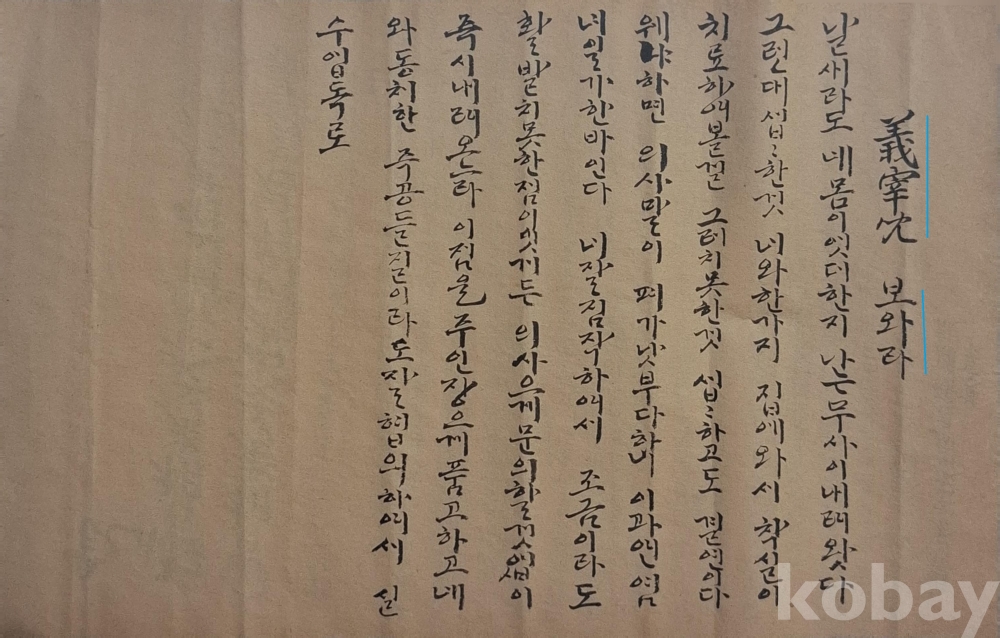 義宰 보와라
날새라도 네몸이엇더한지 난는무사이내려왓다
그런대 섭〻한것 너와한가지 집에와서 착실이
치료하여볼걸 그러치못한것 섭〻하고도 결연이다
웨냐하면 의사말이 페가낫부다하 이과연염
녀일가한바인다 너잘짐작하여서 조금이라도
활발치못한점이잇게든 의사으게문의할것업이
즉시내려온느라 이점을주인장으게품고하고네
와동치한 주공들 이라도잘협의하여서 실
수업도록
kobay